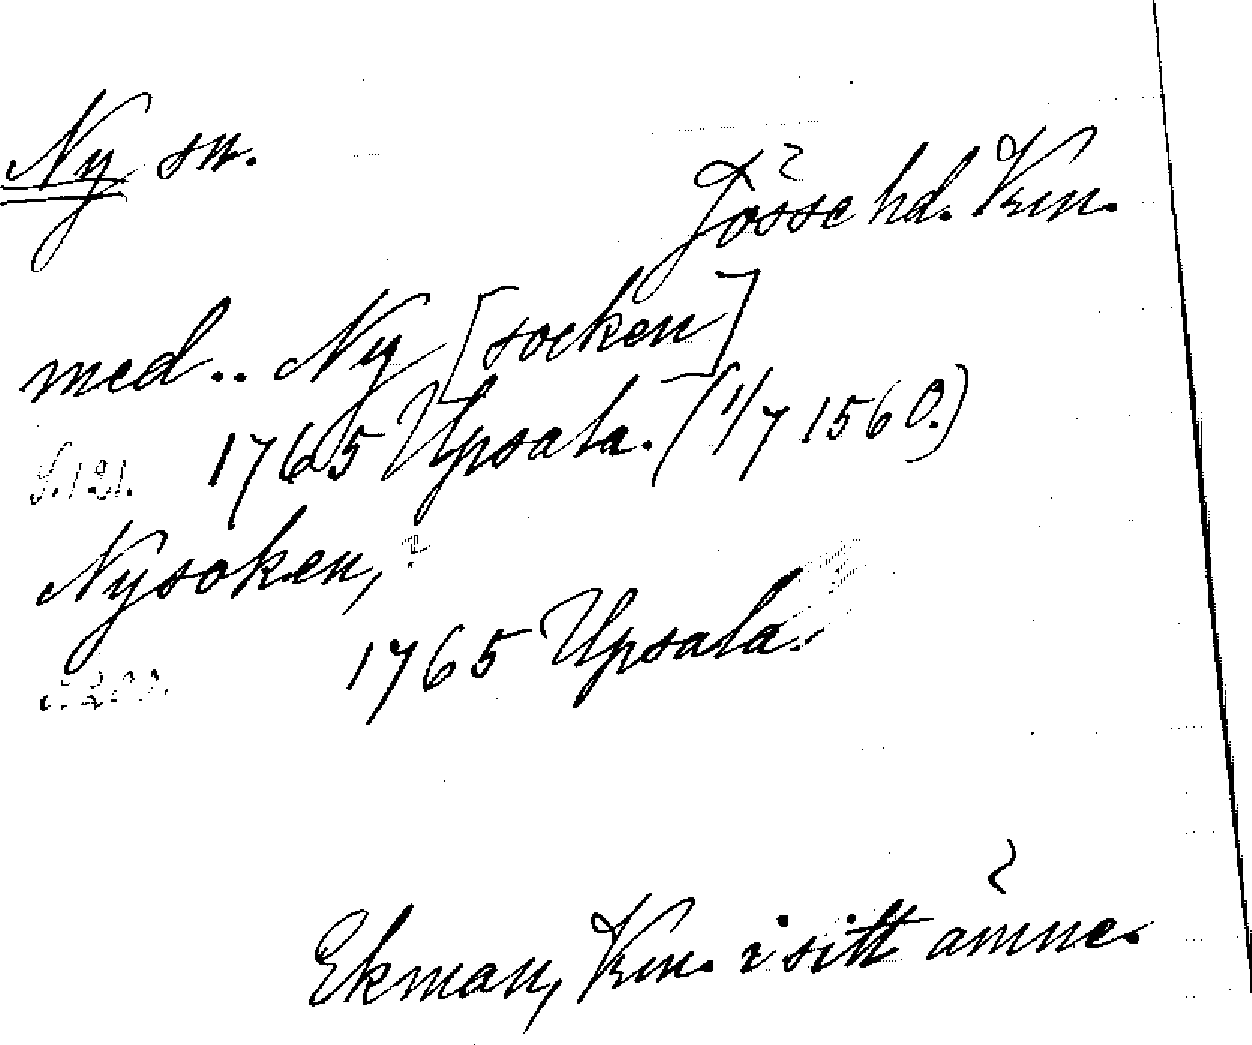 Ny sn.
Jösse hd. Vrm.
med.. Ny [socken]
1765 Upsala. (1/7 1560.)
S. 121.
Nysoken,
1765 Upsala.
s. 200.
Ekman, Vrm. i sitt ämne.